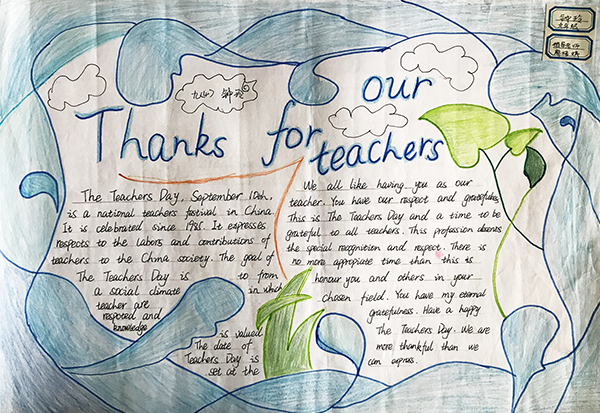 Thanks for our teachers
The Teachers Day, September 10th,
is a national teachers festival in China.
It is celebrated since 1985. It expresses
respects to the labors and contributions of
teachers to the China society. The goal of
The Teachers Day is to from
a social climate in which
teacher are
respected and
knowledge
is valued
The date of
Teachers Day is
set at the
We all like having you as our
teacher. You have our respect and gratefulness.
This is The Teachers Day and a time to be
grateful to all teachers. This profession deserves
the special recognition and respect. There is
no more appropiate time than this
honour you and others in your
chosen field. You have my eternal
gratefulness. Have a happy
The Teachers Day. We are
more thankful than we
can express.